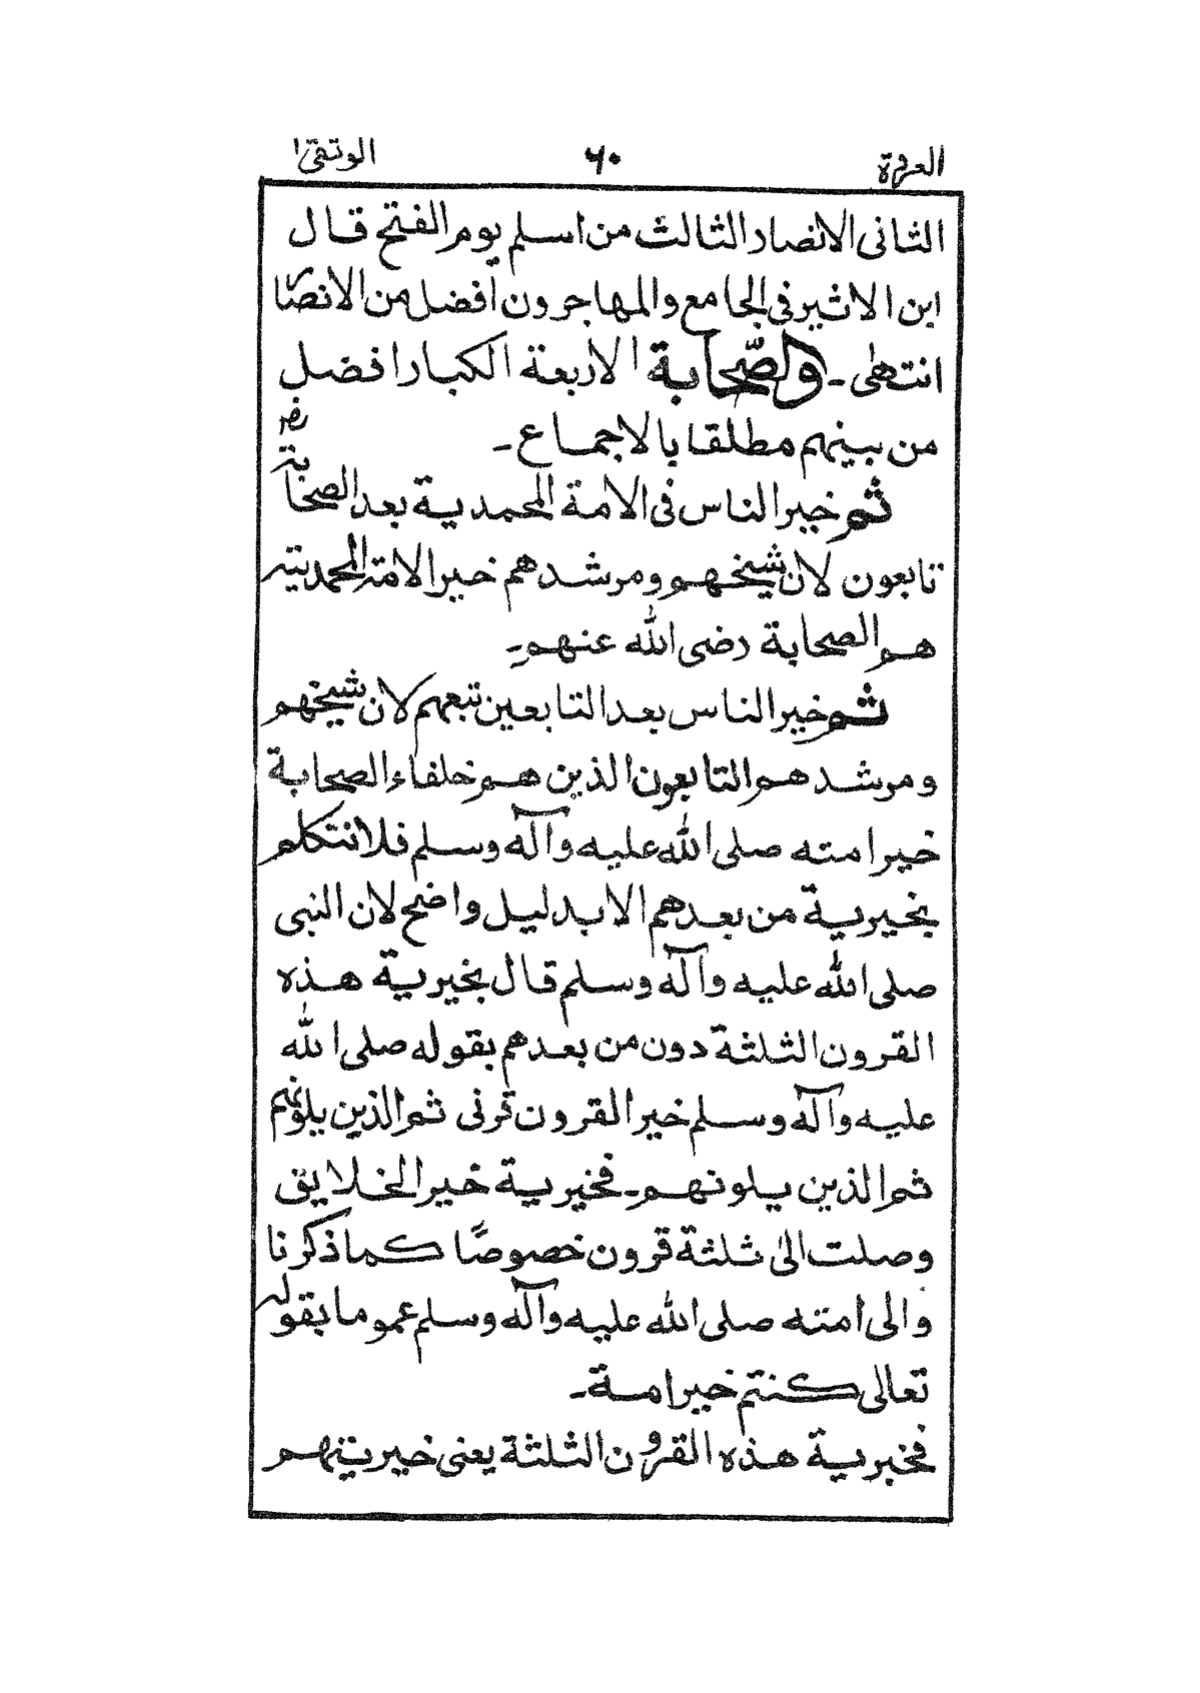 العروة ٦٠ الوثقىٰ
الثانى الانصار الثالث من اسلم يوم الفتح قال
ابن الاثير فى الجامع والمهاجرون افضل من الانصار
انتهىٰ۔ والصّحابة الاربعة الكبار افضل
من بينهم مطلقا بالاجماع۔
ثم خير الناس فى الامة المحمدية بعد الصحابة رضؓ
تابعون لان شيخهم ومرشدهم خير الامة المحمدية
هم الصحابة رضى الله عنهم۔
ثم خير الناس بعد التابعين تبعهم لان شيخهم
ومرشدهم التابعون الذين هم خلفاء الصحابة
خير امته صلى الله عليه وآله وسلم فلا نتكلم
بخيرية من بعدهم الا بدليل واضح لان النبى
صلى الله عليه وآله وسلم قال بخيرية هذه
القرون الثلثة دون من بعدهم بقوله صلى الله
عليه وآله وسلم خير القرون قرنى ثم الذين يلونهم
ثم الذين يلونهم۔ فخيرية خير الخلايق
وصلت الىٰ ثلثة قرون خصوصًا كما ذكرنا
والى امته صلى الله عليه وآله وسلم عموما بقوله
تعالى كنتم خير امة۔
فخيرية هذه القرون الثلثة يعنى خيريتهم